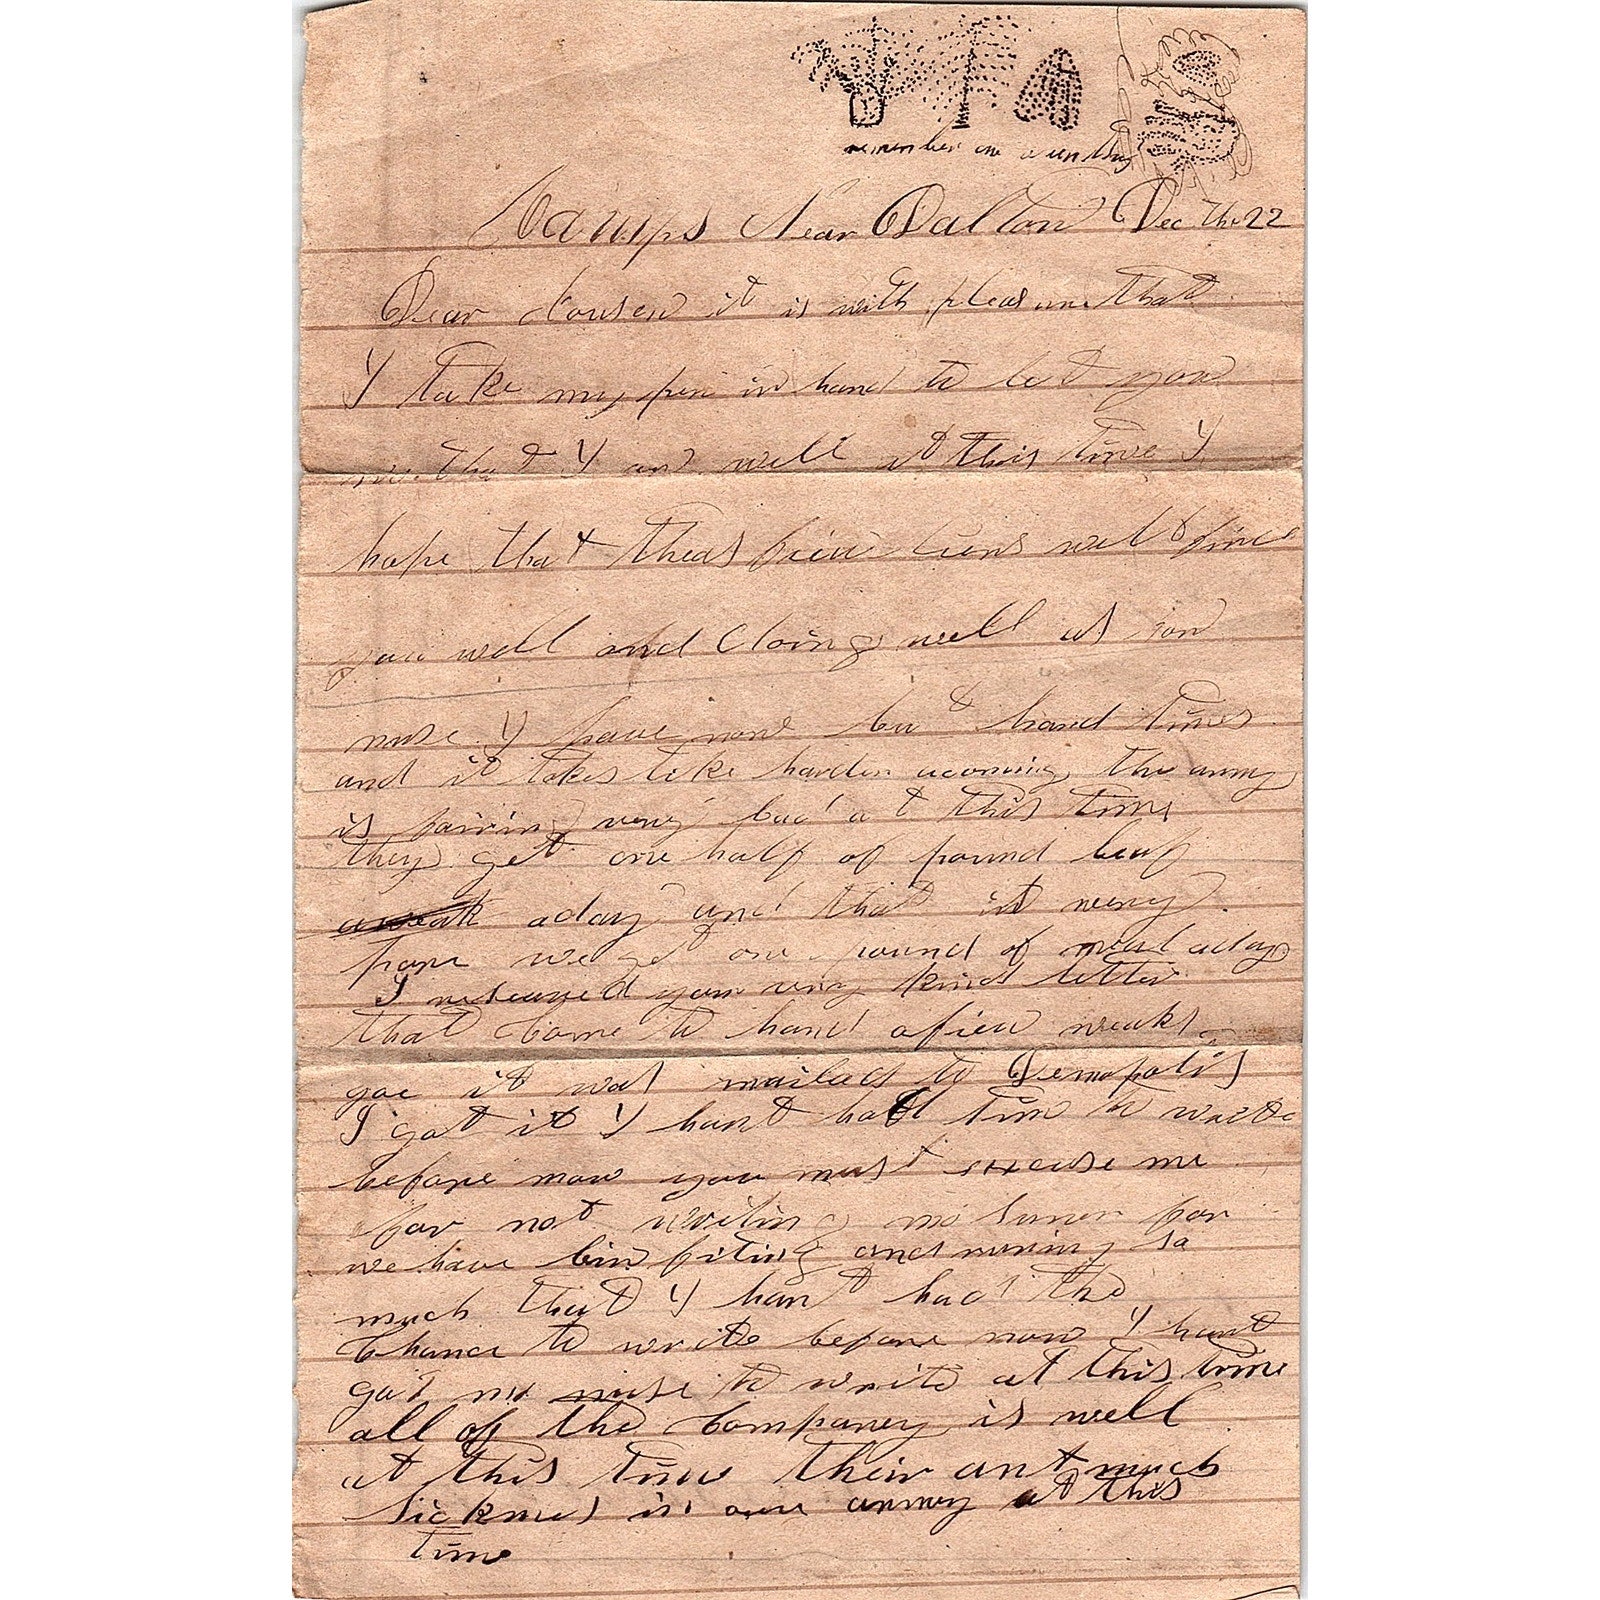 remember me
Camps Near Dalton Dec the 22
Dear Cousen it is with pleasure that
I take my pen in hand to let you
no that I am well at this time I
hope that theas few lines will find
you well and doing well as for
nuse I have none but hard times
and it lokes like harder acoming the army
is fairing very bad at this time
they get one half of pound beaf
aday and that is very
pore we get one pound of meal aday
I receaved your very kind letter
that Come to hand afew weaks
goe it was mailed to Demopolis
I got it I hant had time to write
before now you must excuse me
for not writing no suner for
we have bin fiting and runing so
much that I hant had the
Chance to write before now I hant
got no nuse to write at this time
all of the Company is well
at this time their ant much
sicknes in our armey at this
time